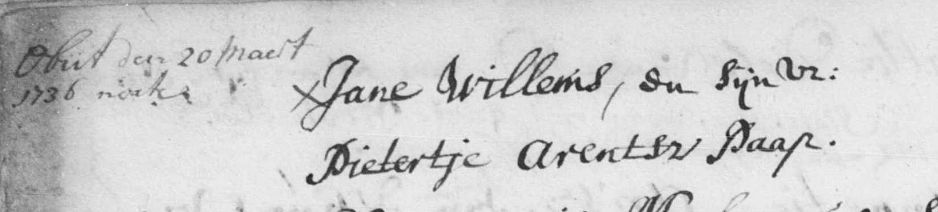 Obiit den 20 Maert
1736
×Jane Willems, en sijn vr:
Pietertje Arents Paap.